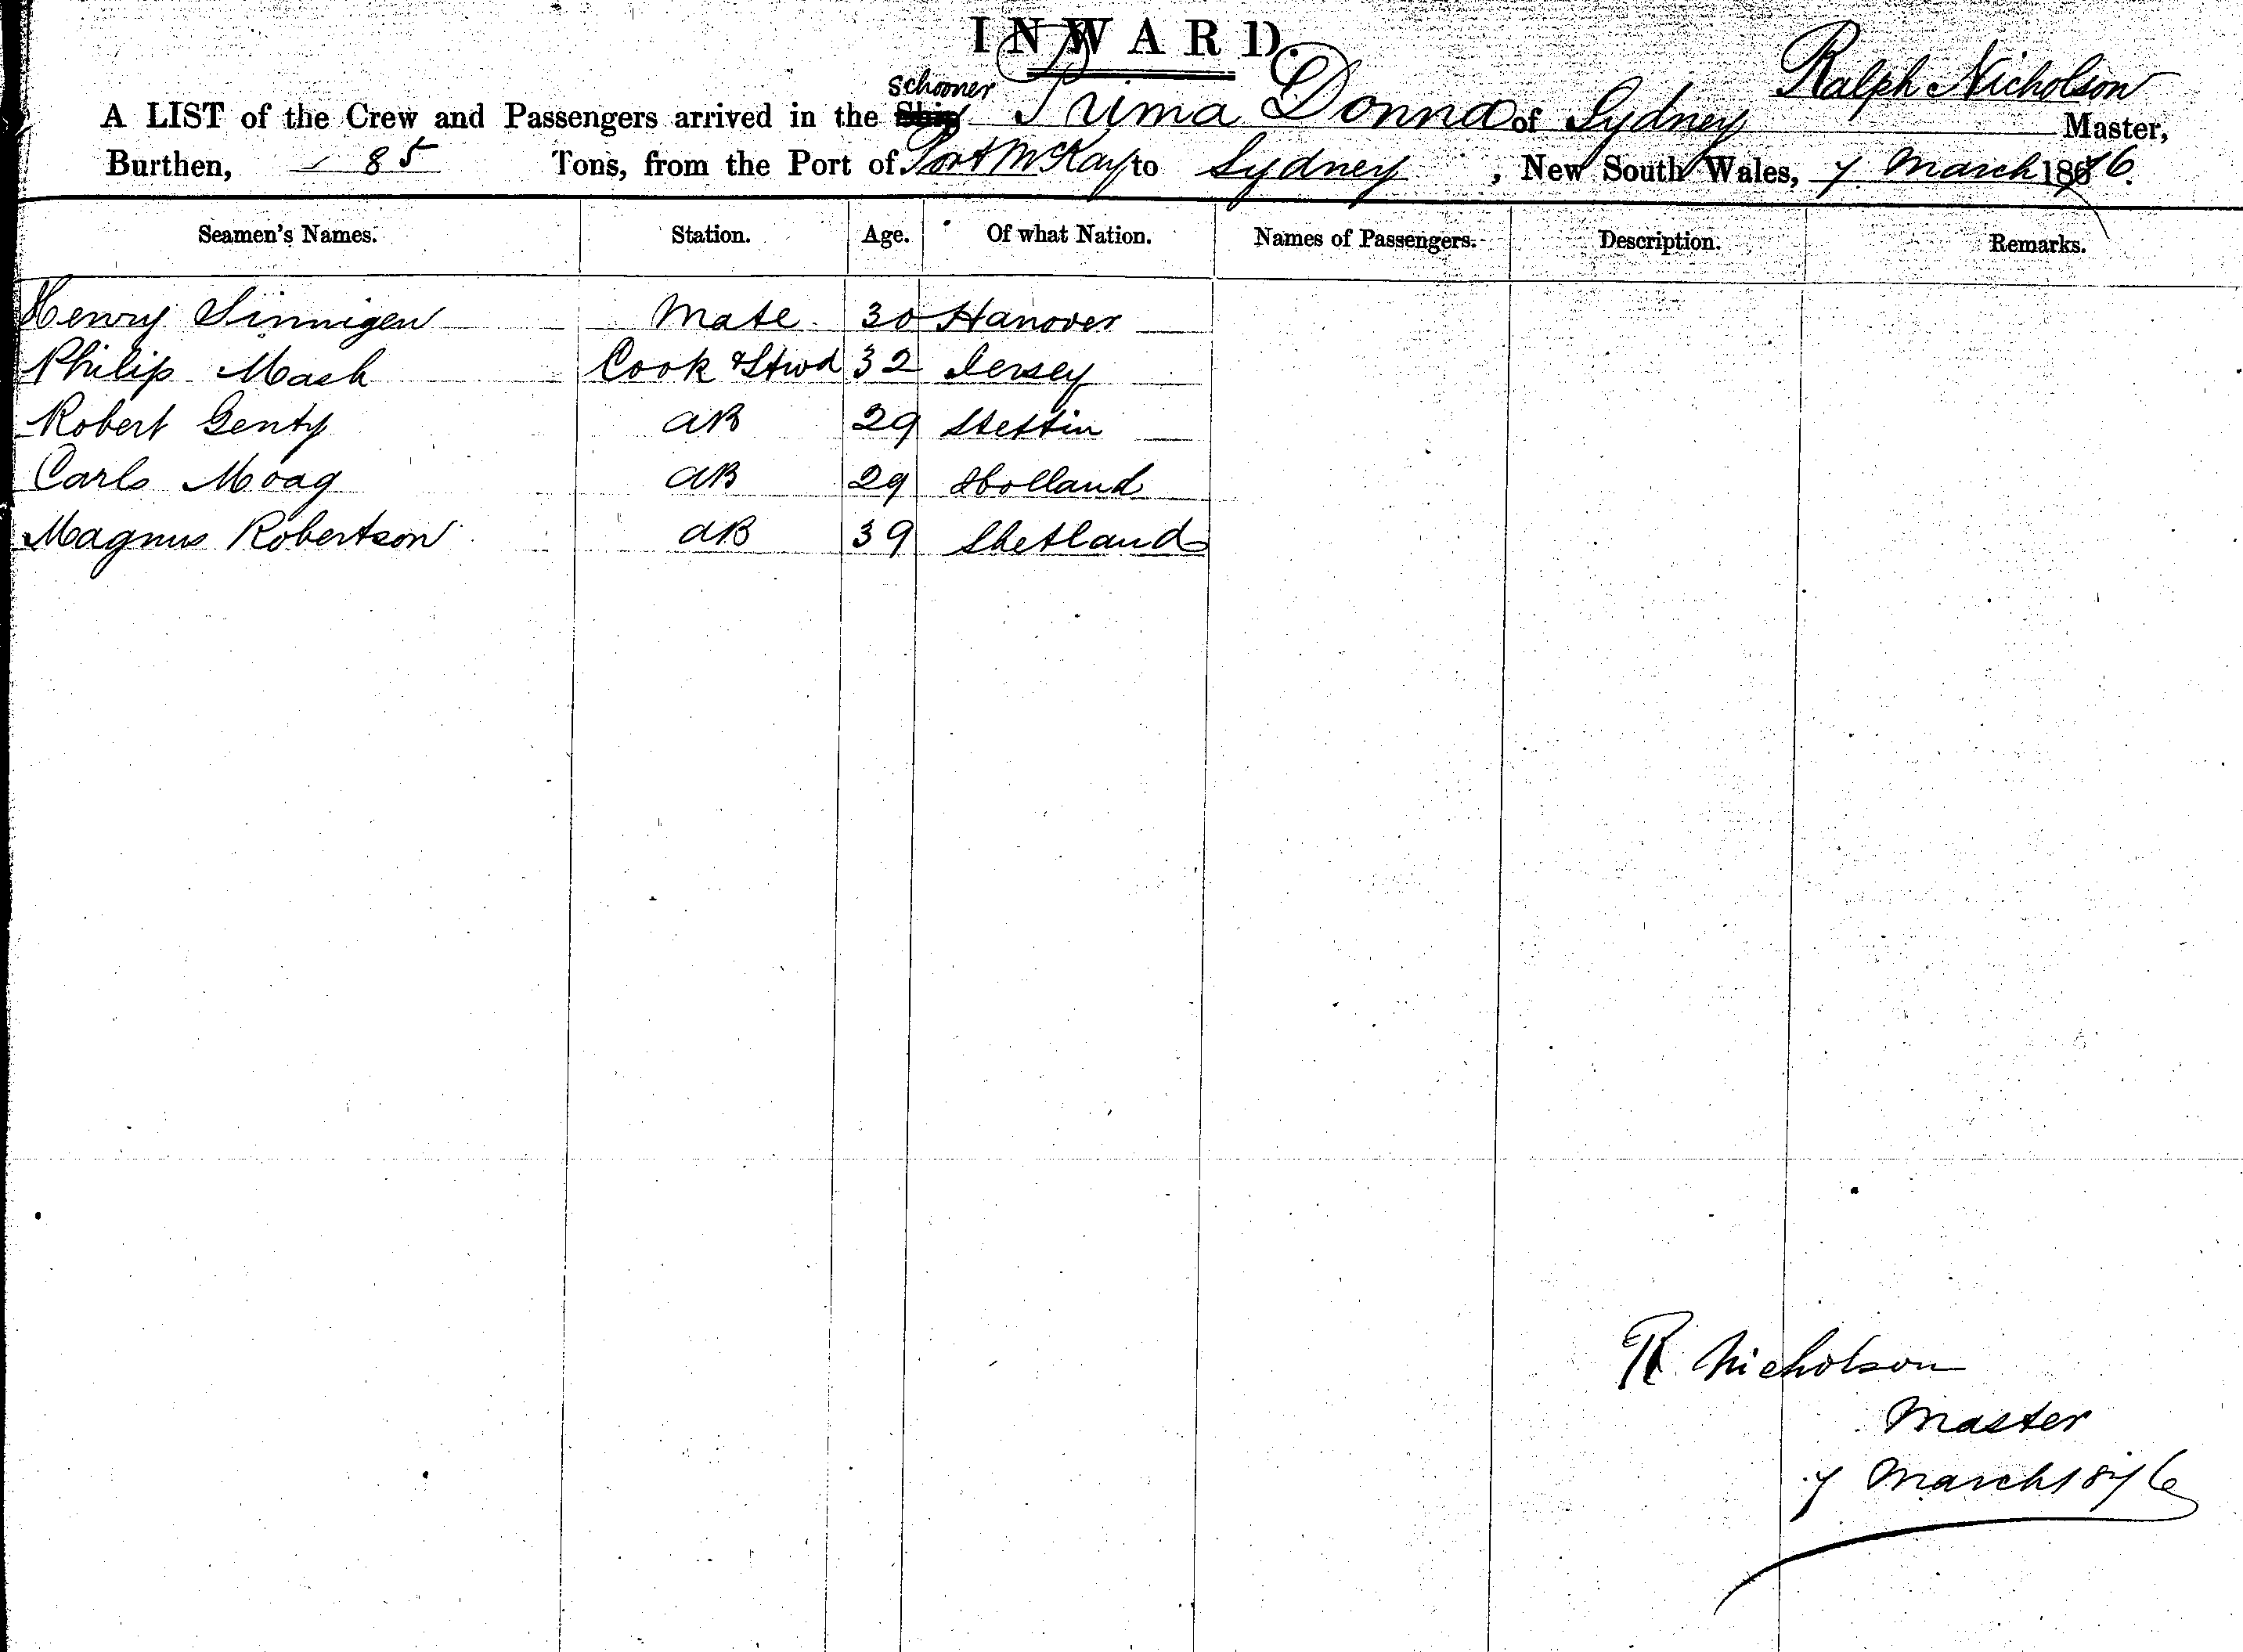 INWARD.
schooner Ralph Nicholson
A LIST of the Crew and Passengers arrived in the Ship Prima Donna of Sydney Master,
Burthen, 85 Tons, from the Port of Port McKay to Sydney, New South Wales, 7 March 1876.
Seamen's Names. Station. Age. Of what Nation. Names of Passengers. Description. Remarks.
Henry Sinnigen Mate 30 Hanover
Philip Mash Cook & Stwd 32 Jersey
Robert Genty AB 29 Stettin
Carlo Moag AB 29 Holland
Magnus Robertson AB 39 Shetland
R Nicholson
Master
7 March 1876